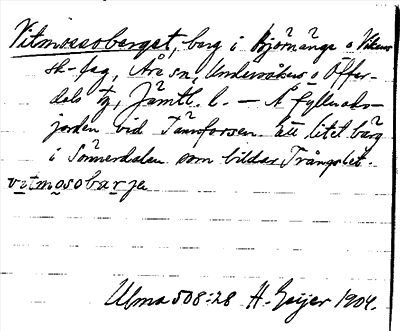 Vitmossoberget, berg i Björnänge o Vikens
sk-lag, Åre sn, Undersåkers o Offer-
dals tg, Jämtl. l. — Å fyllnads-
jorden vid Tännforsen. Ett litet bärg
i Sönnerdalen som bildar Trångslet.
vitmosobarja
Ulma 508:28 H. Geijer 1904.